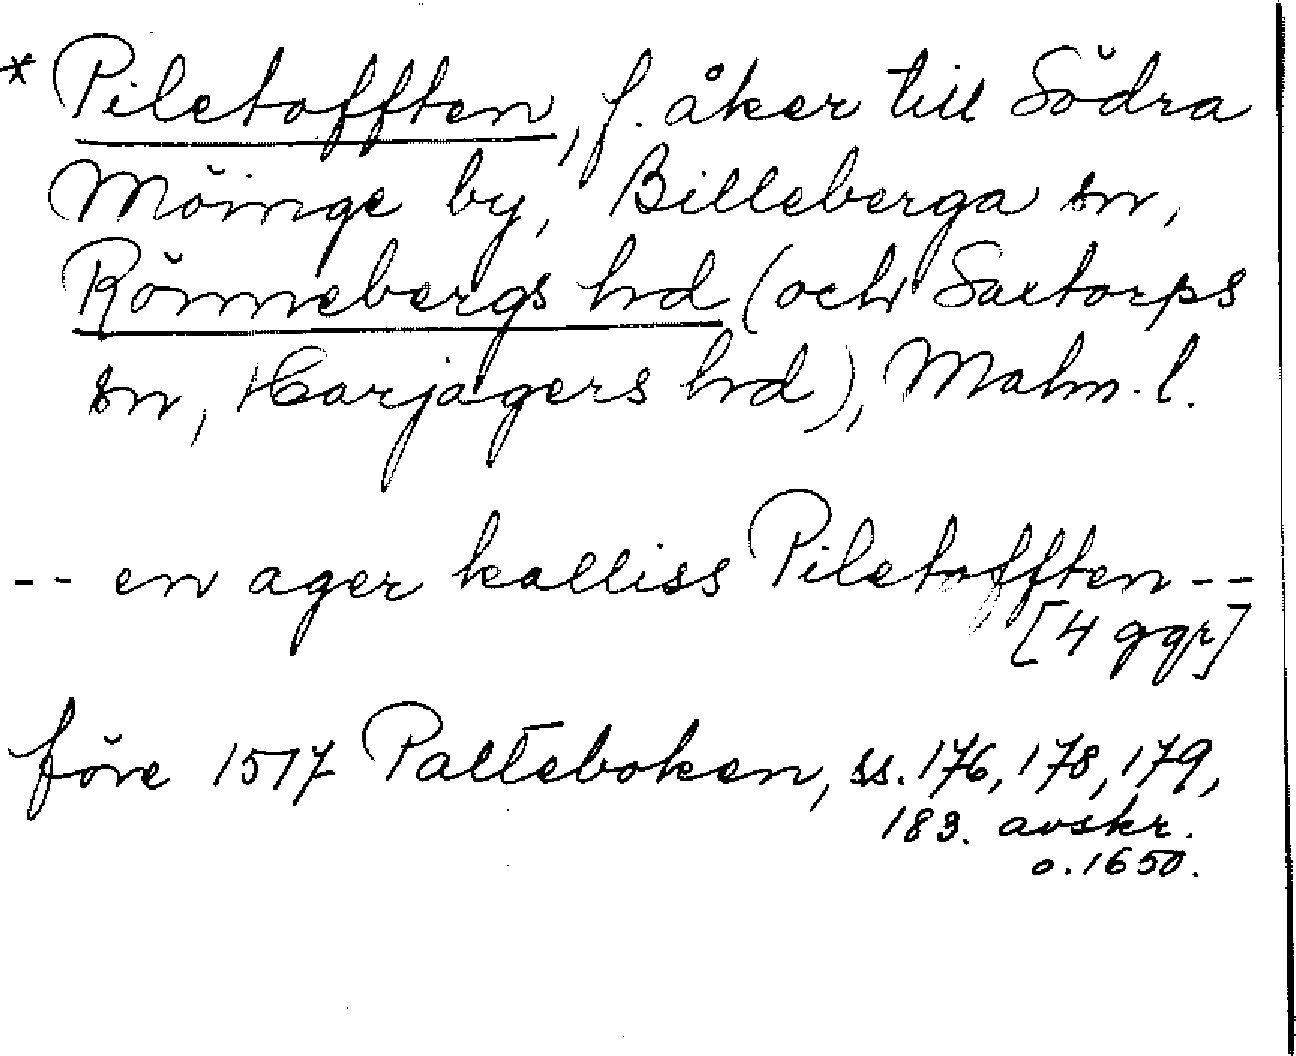 * Piletofften, f. åker till Södra
Möinge by, Billeberga sn,
Rönnebergs hrd (och Saxtorps
sn, Harjagers hrd), Malm. l.
-- en ager kalliss Piletofften --
[4 ggr]
före 1517 Palteboken, ss. 176, 178, 179,
183. avskr.
o. 1650.